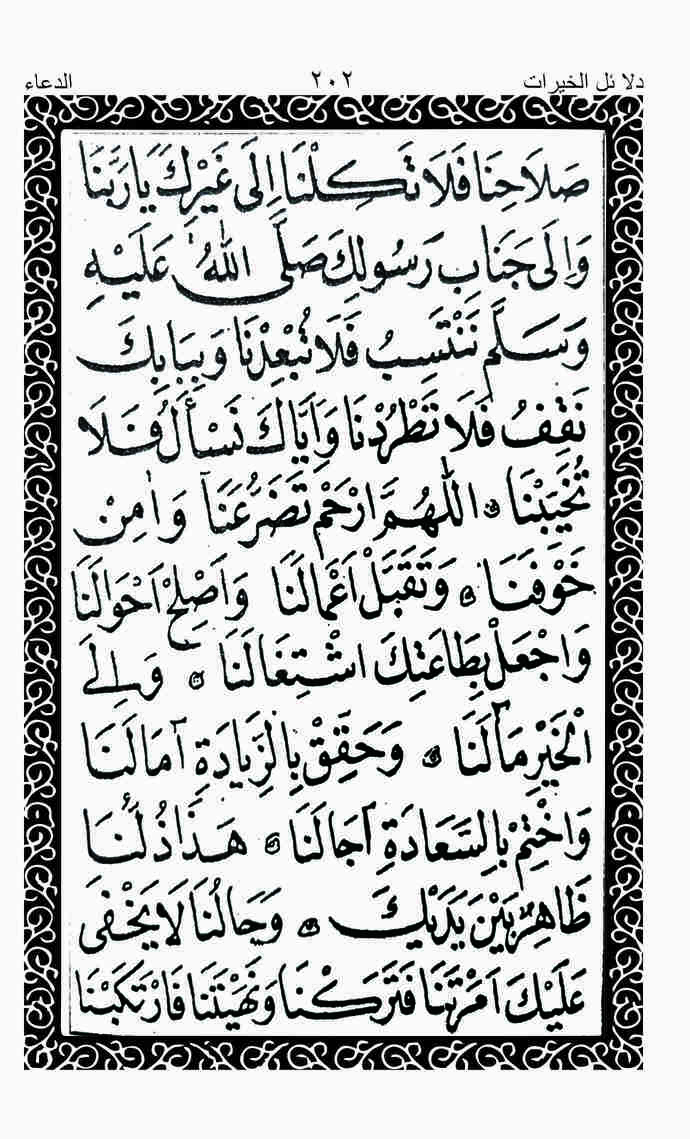 دلائل الخيرات ٢٠٢ الدعاء
صَلَاحِنَا فَلَا تَكِلْنَا إِلَى غَيْرِكَ يَارَبَّنَا
وَاِلَى جَنَابِ رَسُولِكَ صَلَّى اللهُ عَلَيْهِ
وَسَلَّمَ نَنْتَسِبُ فَلَا تُبْعِدْنَا وَبِبَابِكَ
نَقِفُ فَلَا تَطْرُدْنَا وَاِيَّاكَ نَسْأَلُ فَلَا
تُخَيِّبْنَا ۞ اَللّٰهُمَّ ارْحَمْ تَضَرُّعَنَا وَاٰمِنْ
خَوْفَنَا ۞ وَتَقَبَّلْ اَعْمَالَنَا وَاَصْلِحْ اَحْوَالَنَا
وَاجْعَلْ بِطَاعَتِكَ اشْتِغَالَنَا ۞ وَاِلَى
الْخَيْرِ مَآلَنَا ۞ وَحَقِّقْ بِالزِّيَادَةِ آمَالَنَا
وَاخْتِمْ بِالسَّعَادَةِ آجَالَنَا ۞ هَذَا ذُلُّنَا
ظَاهِرٌ بَيْنَ يَدَيْكَ ۞ وَحَالُنَا لَا يَخْفَى
عَلَيْكَ اَمَرْتَنَا فَتَرَكْنَا وَنَهَيْتَنَا فَارْتَكَبْنَا